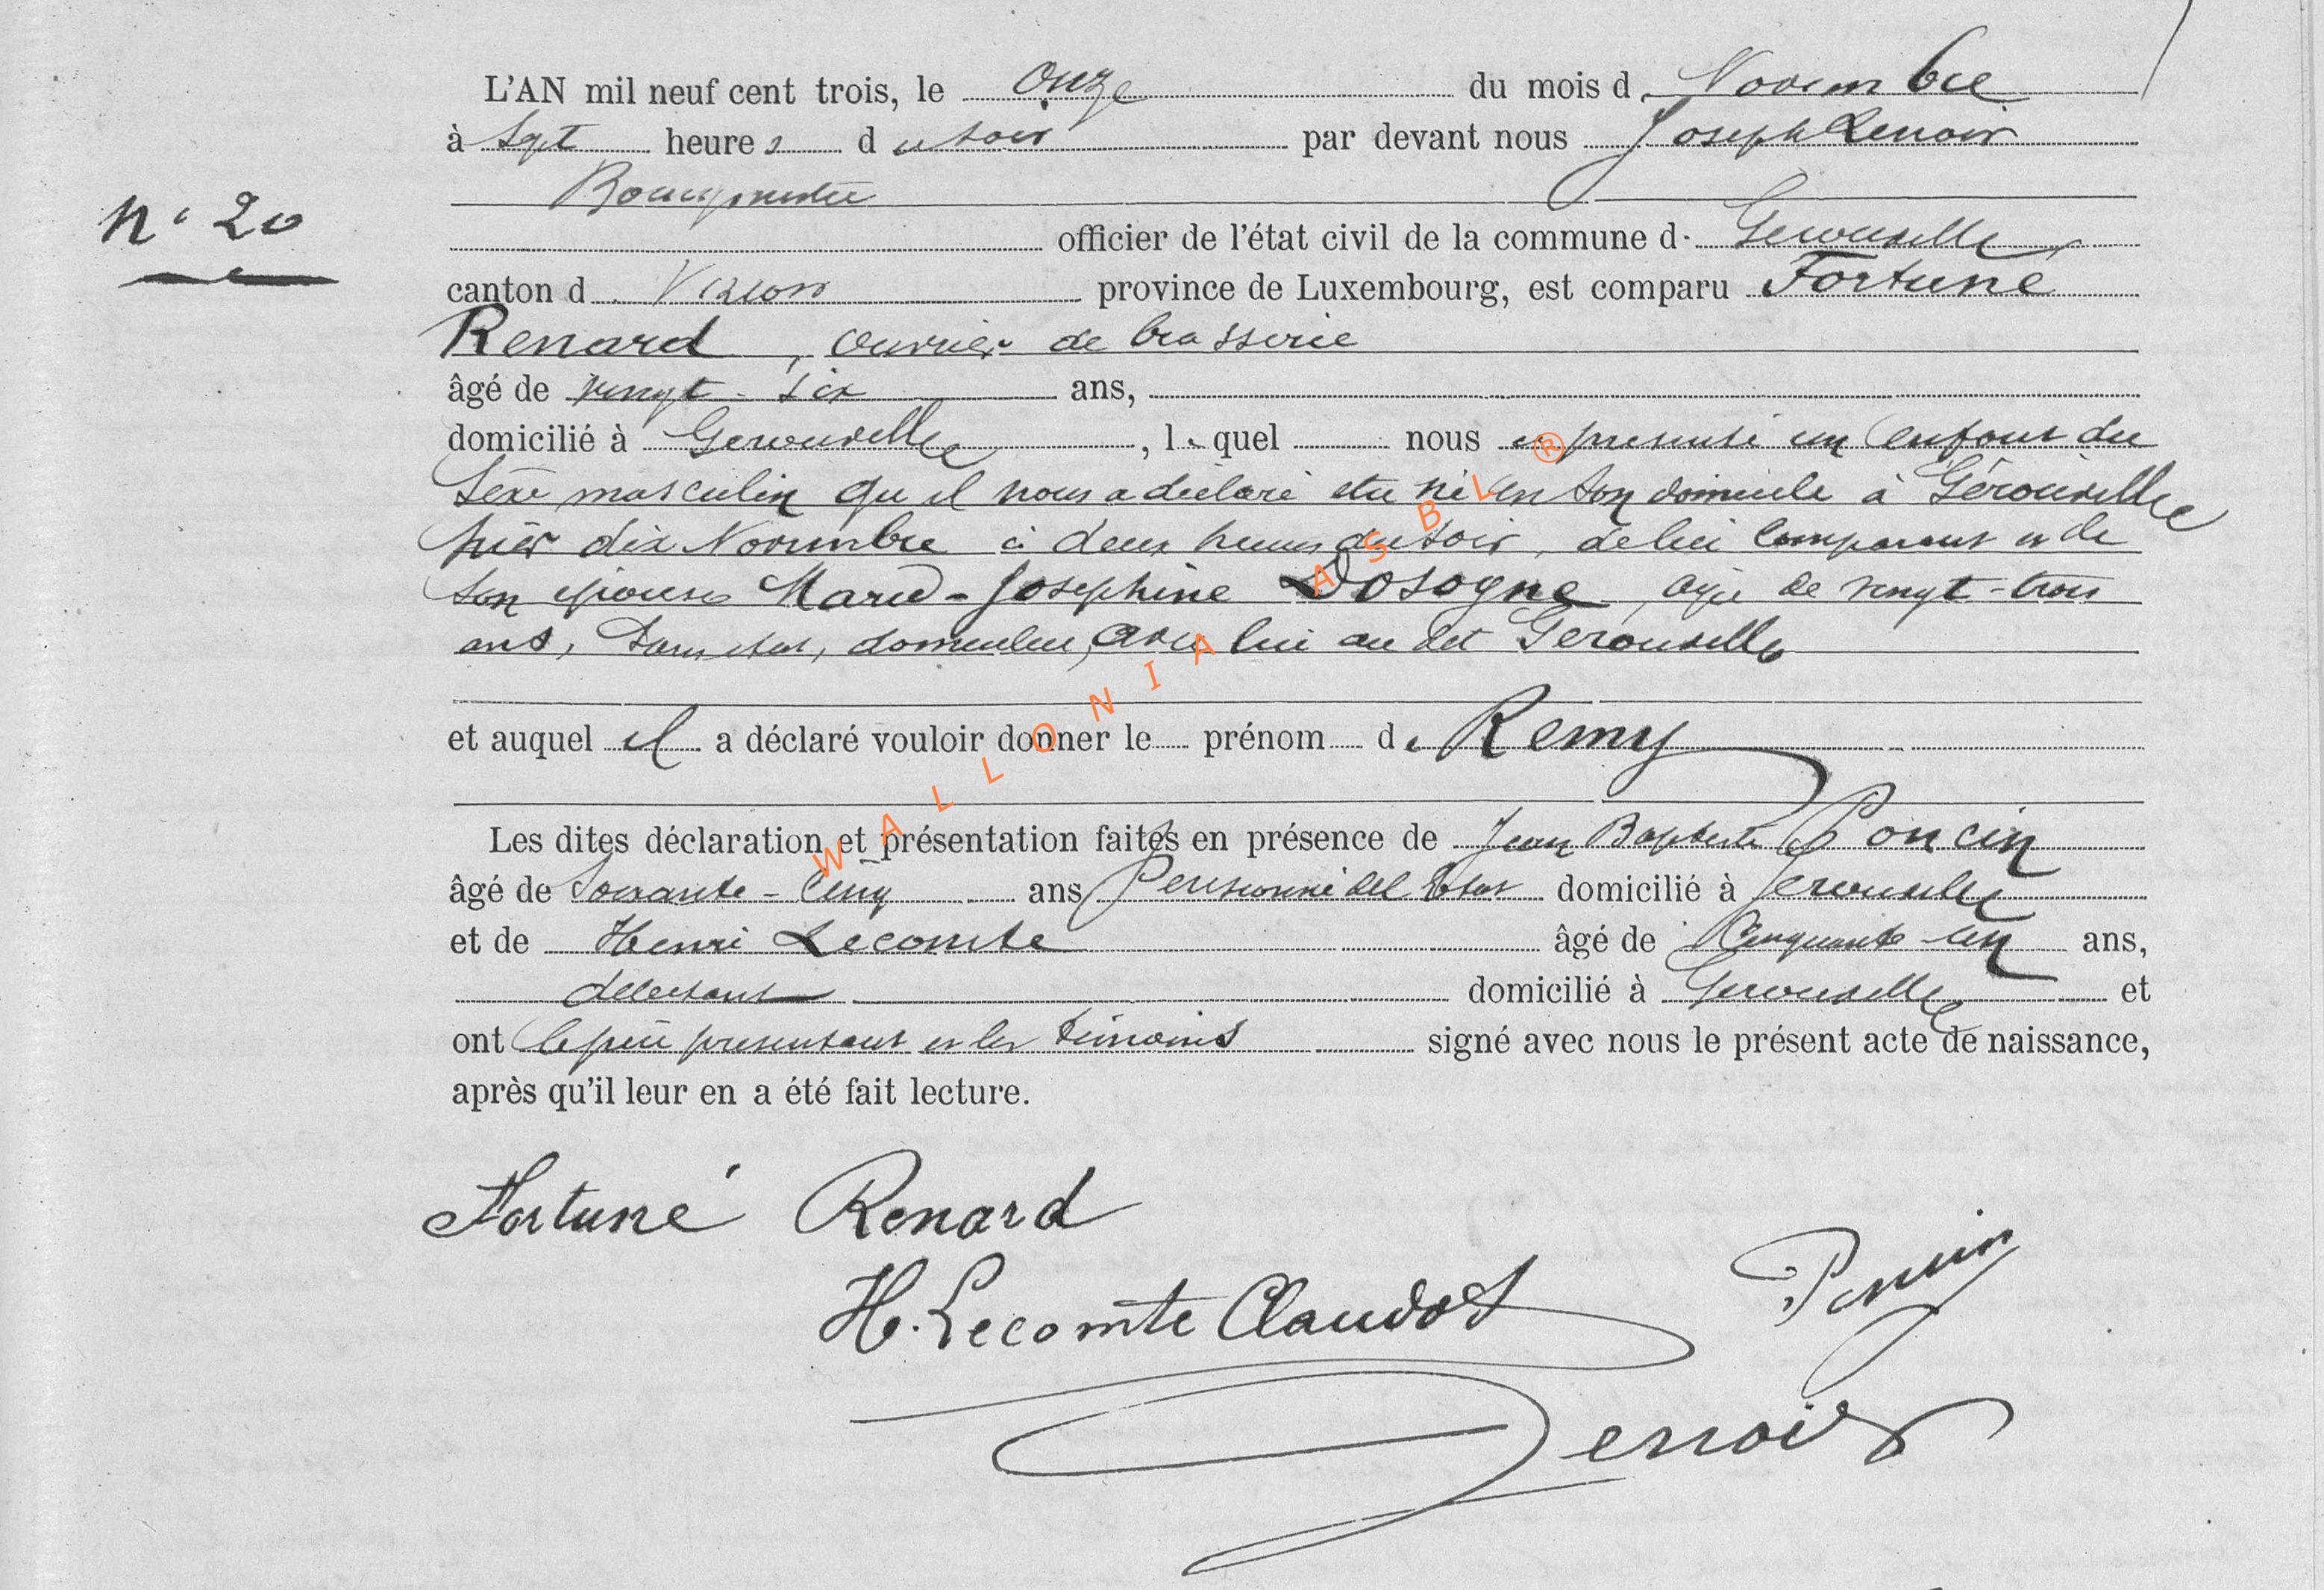 L'AN mil neuf cent trois, le Onze du mois de Novembre
à Sept heures du soir par devant nous Joseph Lenoir
Bourgmestre
N° 20
officier de l'état civil de la commune de Gerouville
canton de Virton province de Luxembourg, est comparu Fortuné
Renard, ouvrier de brasserie
âgé de vingt-six ans,
domicilié à Gerouville, lequel nous a présenté un enfant du
sexe masculin qu'il nous a déclaré être né en son domicile à Gérouville
hier dix Novembre à deux heures du soir, de lui comparant et de
son épouse Marie-Josephine Dosogne, agée de vingt-trois
ans, sans état, domiciliée avec lui au dit Gerouville
et auquel il a déclaré vouloir donner le prénom de Remy
Les dites déclaration et présentation faites en présence de Jean Baptiste Poncin
âgé de Soixante-Cinq ans Pensionné de l'Etat domicilié à Gerouville
et de Henri Lecomte âgé de Cinquante-un ans,
domicilié à Gerouville et
ont le père présentant et les témoins signé avec nous le présent acte de naissance,
après qu'il leur en a été fait lecture.
Fortuné Renard
H. Lecomte Claudot Poncin
Lenoir
WALLONIA ASBL ®